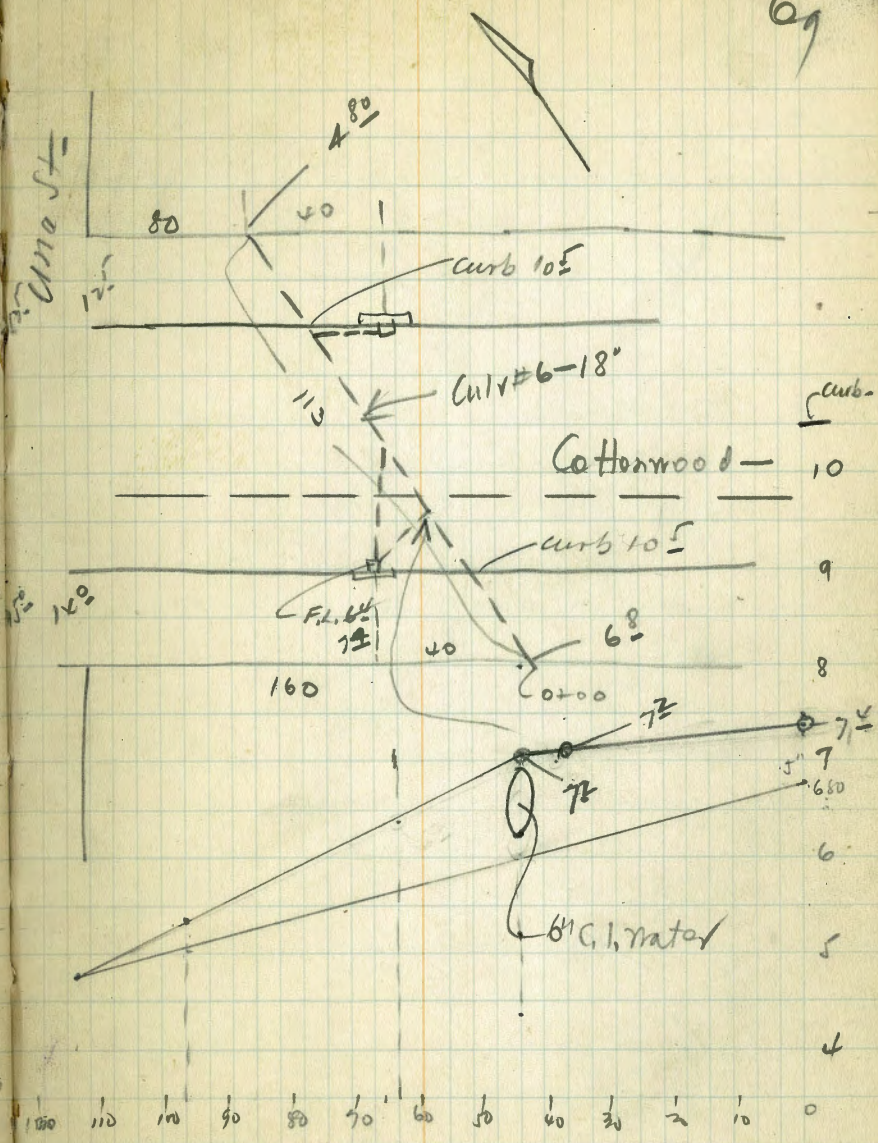 69
4 80
Uno St
80
40
curb 10 5
12 5
Culv #6-18"
110
curb
Cottonwood —
10
curb 10 5
9
14 0
F.L. 6 4
7 4
40
6 8
8
160
0+00
7 2
7 4
7
7 2
680
6
6" C.I. water
5
4
110 100 90 80 70 60 50 40 30 20 10 0